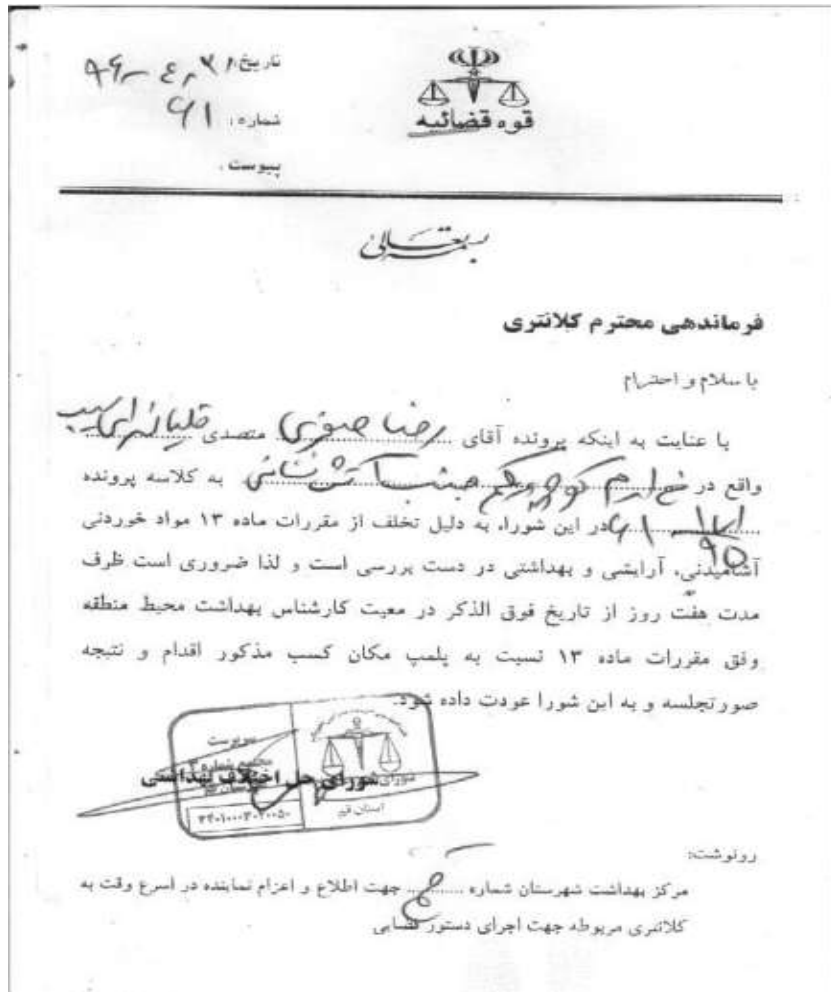 قوه قضائیه
تاریخ: ۹۶-۴-۳۱
شماره: ۶۱
پیوست:
بسمه تعالی
فرماندهی محترم کلانتری
با سلام و احترام
با عنایت به اینکه پرونده آقای رضا متصدی
واقع در به کلاسه پرونده
در این شورا، به دلیل تخلف از مقررات ماده ۱۳ مواد خوردنی
آشامیدنی، آرایشی و بهداشتی در دست بررسی است و لذا ضروری است ظرف
مدت هفت روز از تاریخ فوق الذکر در معیت کارشناس بهداشت محیط منطقه
وفق مقررات ماده ۱۳ نسبت به پلمپ مکان کسب مذکور اقدام و نتیجه
صورتجلسه و به این شورا عودت داده شود.
سرپرست
مجتمع شماره ۳
شورای حل اختلاف بهداشتی
استان قم
رونوشت:
مرکز بهداشت شهرستان شماره جهت اطلاع و اعزام نماینده در اسرع وقت به
کلانتری مربوطه جهت اجرای دستور قضایی